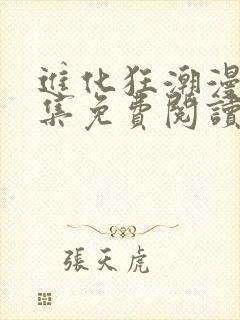 進化狂潮漫
集免費閱讀
張天虎